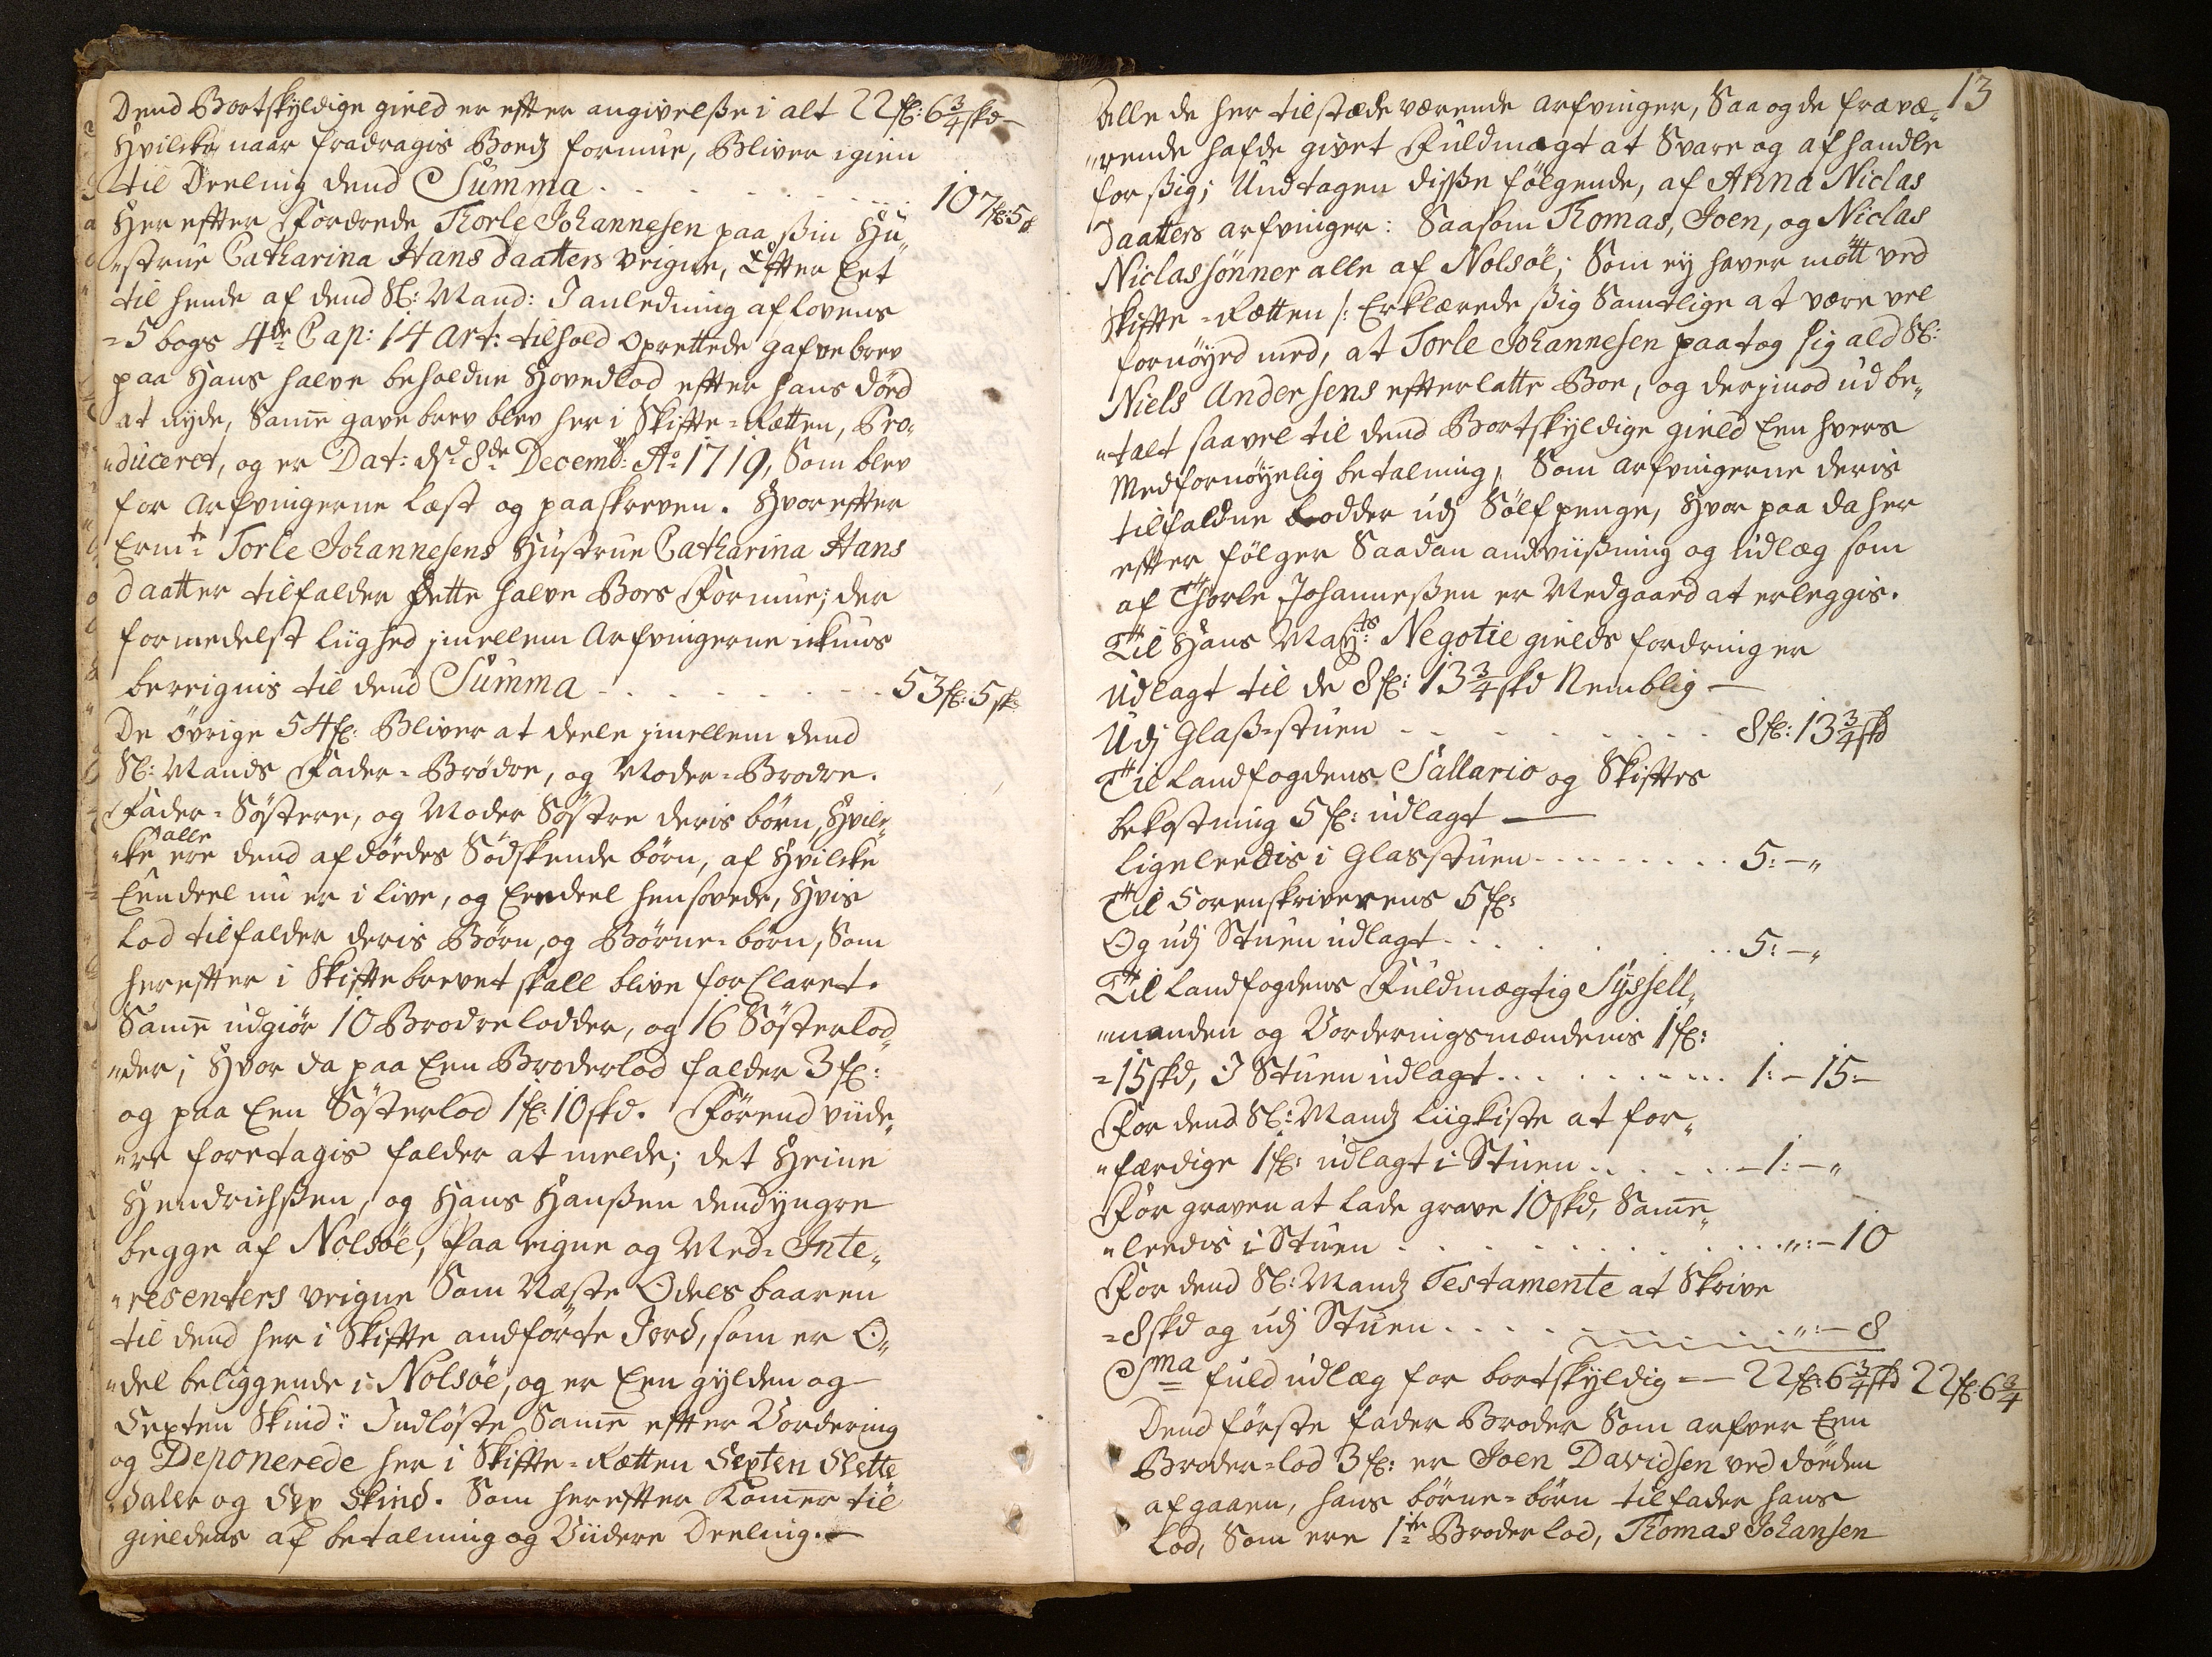 Dend Bortskyldige gield er efter angivelße i alt 22 fl: 6 3/4 skd
Hvilcke naar fradragis Boedz formue, Bliver igien
til Deeling dend Summa . . . . . . . 107 fl: 5 s
Her effter Fordrede Thorle Johannesen paa ßin Hu„
„strue Catharina Hans daatters veigne, Effter Eet
til hende af dend Sl: Mand: I anledning af lovens
=5 bogs 4de Cap: 14 Art: tilhold oprettede gafvebrev
paa Hans halve beholdne Hovedlod effter hans död
at nyde, Same gavebrev blev her i Skiffte=Retten, Pro„
„duceret, og er Dat: d. 8de Decemb: Ao 1719, Som blev
for Arfvingerne læst og paaskreven. Hvor effter
Ermte Torle Johannesens Hustrue Catharina Hans
daatter tilfalder dette halve Boes Formue; der
formedelst liighed jmellem Arfvingerne ickuns
bereignis til dend Summa - . . . . . . 53 fl: 5 sk:
De övrige 54 fl: Bliver at deele jmellem dend
Sl: Mands Fader=Brödre, og Moder=Brodre.
Fader=Söstere, og Moder Söstre deris börn, Hvilc„
„ke alle ere dend afdödes Södskende börn, af Hvilcke
Eendeel nu er i live, og Eendeel hensovede, Hvis
Lod tilfalder deris Börn, og Börne=börn, Som
hereffter i Skifftebrevet skall blive forclaret.
Same udgiör 10 Brodrelodder, og 16 Sösterlod„
„der; Hvor da paa Een Broderlod falder 3 fl:
og paa Een Sösterlod 1 fl: 10 skd. Förend viide„
„re foretagis falder at melde; det Heine
Hendrichßen, og Hans Hanßen dend yngre
begge af Nolsöe, Paa eigne og Med=Inte„
„resenters veigne Som Næste Odels baaren
til dend her i Skiffte andförte Jord, som er O„
„del beliggende i Nolsöe, og er Een gylden og
Sexten Skind: Indlöste Same effter Vordering
og Deponerede her i Skiffte=Retten Sexten Slette
daler og Sex Skind. Som hereffter Komer til
gieldens af betalning og Viidere Deeling.
13
Alle de her tilstædeværende Arfvinger, Saa og de fravæ„
„rende hafde givet Fuldmagt at Svare og afhandle
for ßig; Undtagen disse fölgende, af Anna Niclas
Daatters arfvinger: Saasom Thomas, Joen, og Niclas
Niclassönner alle af Nolsöe; Som ey haver mött ved
Skiffte=Retten /: Erklærede ßig Samtlige at være vel
fornöyed med, at Torle Johannesen paatog sig ald Sl:
Niels Andersens effterlatte Boe, og derjmod udbe„
„talt saavel til dend Bortskyldige gield Een hvers
Medfornöyelig betalning, Som Arfvingerne deris
tilfaldne Lodder udj Sölfpenge, Hvor paa da her
effter fölger Saadan andviißning og udlæg som
af Thorle Johanneßen er Vedgaaed at erleggis.
Til Hans Mayts: Negotie gields fordringer
Udlagt til de 8 fl: 13 3/4 skd Nemblig —
Udj Glaß=stuen . . . . . . . 8 fl: 13 3/4 skd
Til Landfogdens Sallario og Skifftes
bekostning 5 fl: udlagt —
ligeleedis i Glasstuen . . . . . . 5: — „
Til Sorenskriverens 5 fl:
Og udj Stuen udlagt . . . . . . 5: — „
Til Landfogdens Fuldmægtig Syssell„
„manden og Vorderingsmændenis 1 fl:
=15 skd, I Stuen udlagt . . . . . . 1: — 15: —
For dend Sl: Mandz liigkiste at for„
„færdige 1 fl: udlagt i Stuen . . . . . — 1: — „
För graven at lade grave 10 skd, Same„
„leedis i Stuen . . . . . . . . „: — 10
For dend Sl: Mandz Testamente at Skrive
=8 skd og udj Stuen . . . . . . „: — 8
Sma fuld udlæg for bortskyldig = — 22 fl: 6 3/4 skd 22 fl: 6 3/4
Dend förste fader Broder Som arfver Een
Broder=lod 3 fl: er Joen Davidsen ved döden
afgaaen, hans börne=börn tilfader hans
Lod, Som ere 1te Broder lod, Thomas Johansen